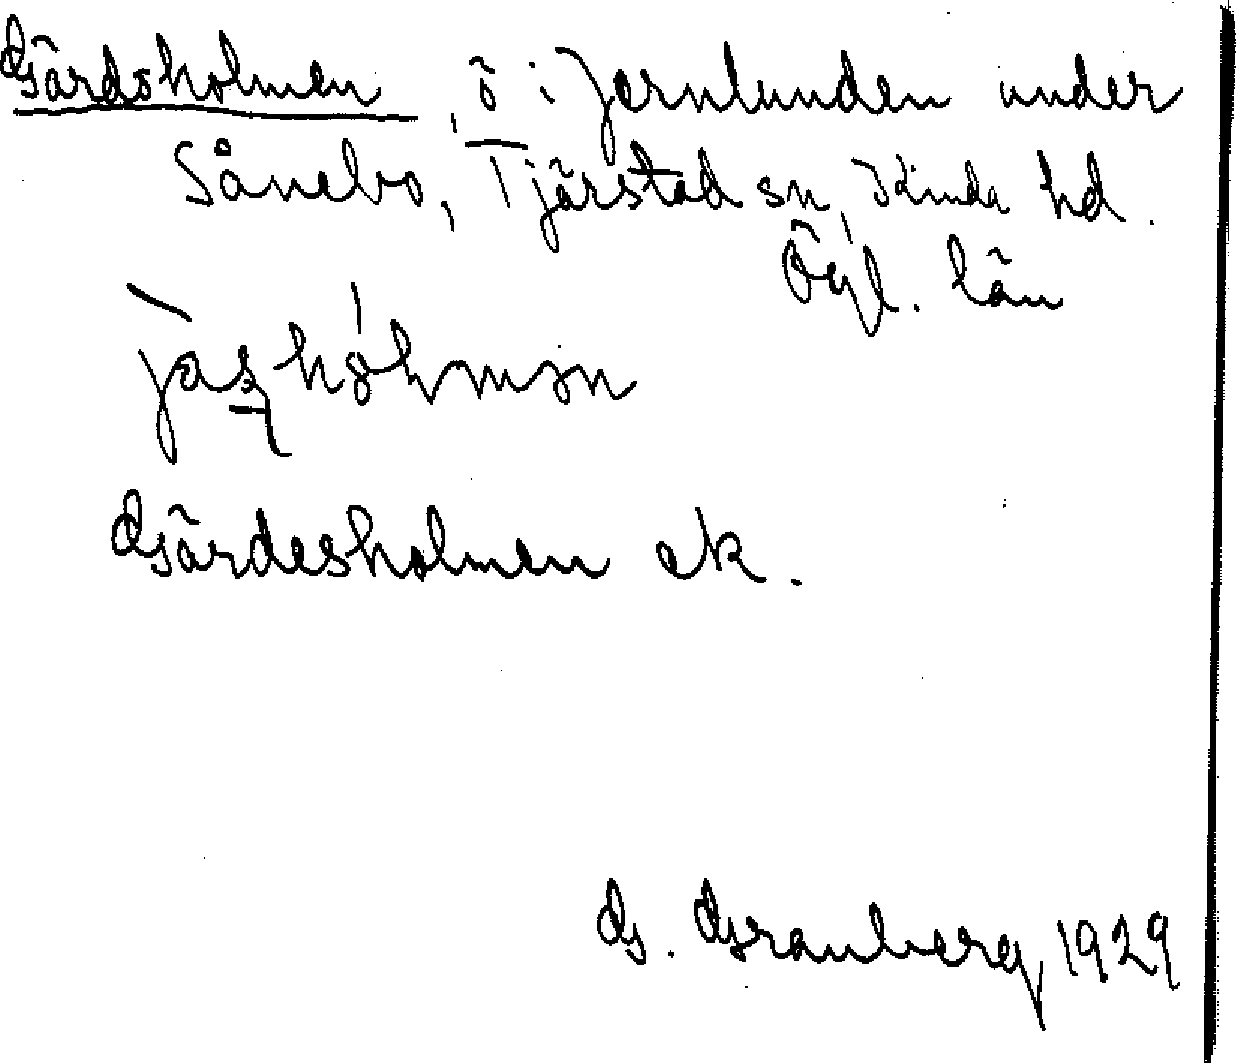 Gärdsholmen, ö i Jernlunden under
Sånebo, Tjärstad sn, Kinda hd.
Ögl. län
Gärdesholmen ek.
G. Granberg 1929